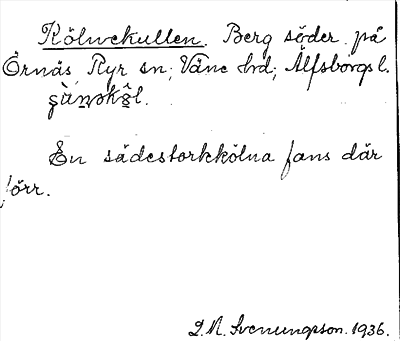 Kölnekullen. Berg söder på
Örnäs, Ryr sn; Väne hd; Älfsborgs l.
En sädestorkkölna fans där
förr.
D.N. Svenungsson. 1936.